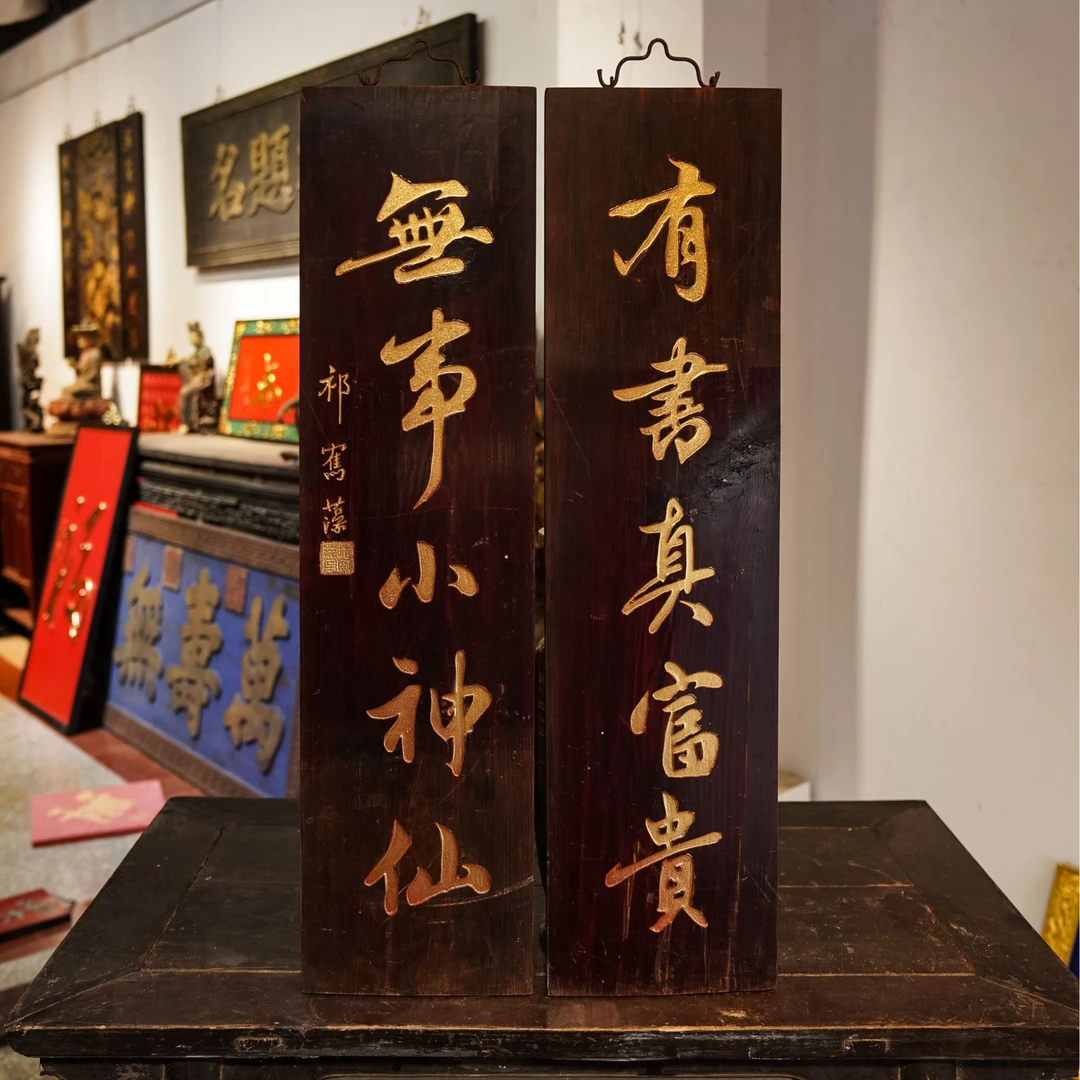 有書真富貴
無事小神仙
祁寯藻
名題
無壽萬